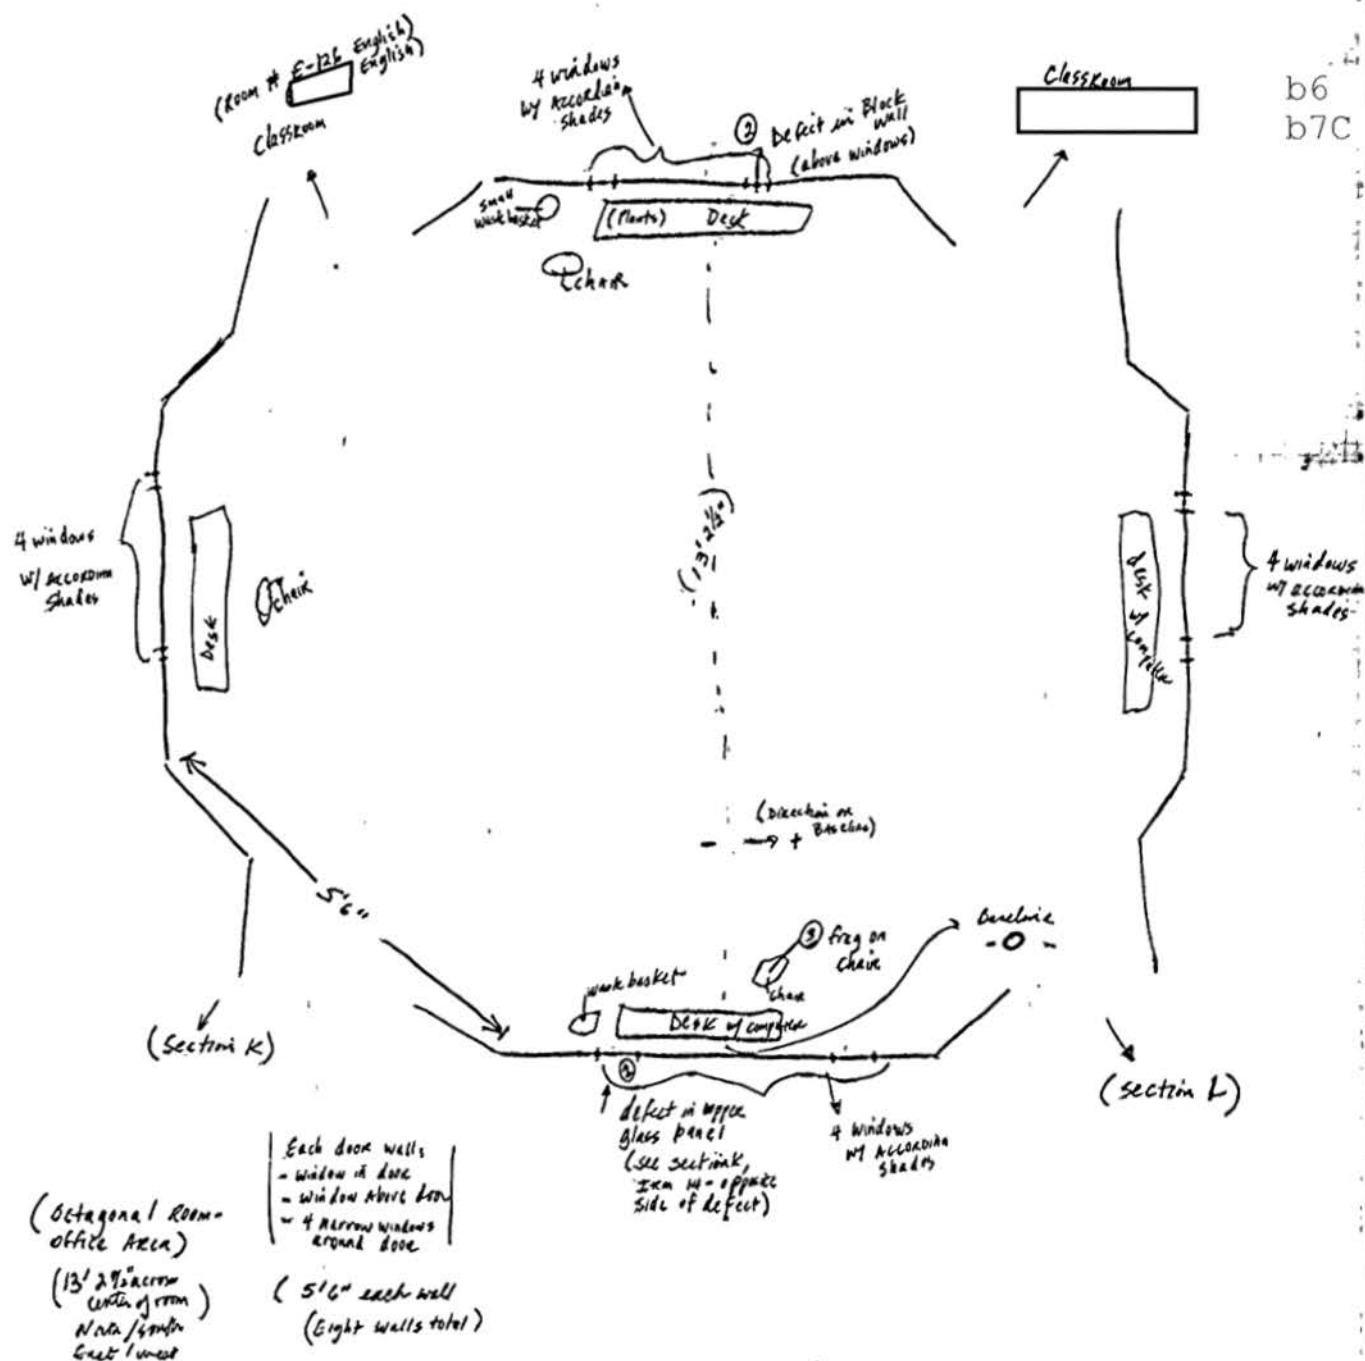 (Room # E-126 English)
English)
Classroom
4 windows
W/ Accordian
Shades
② Defect in Block
Wall
(above windows)
Classroom
b6
b7C
small
wastebasket
(Plants) Desk
chair
(13' 2½")
4 windows
W/ Accordian
Shades
Desk
chair
desk w/
computer
4 windows
W/ accordian
shades
(Direction on
Baseline)
- → +
5'6"
Baseline
- O -
③ frag on
chair
chair
waste basket
Desk w/ computer
②
defect in upper
glass panel
(see section K,
Item 14 - opposite
side of defect)
4 windows
W/ Accordian
Shades
(section K)
(section L)
Each door walls
- window in door
- window above door
- 4 narrow windows
around door
(Octagonal Room-
office Area)
(13' 2½" across
center of room)
North/South
East/West
(5'6" each wall
(Eight walls total)